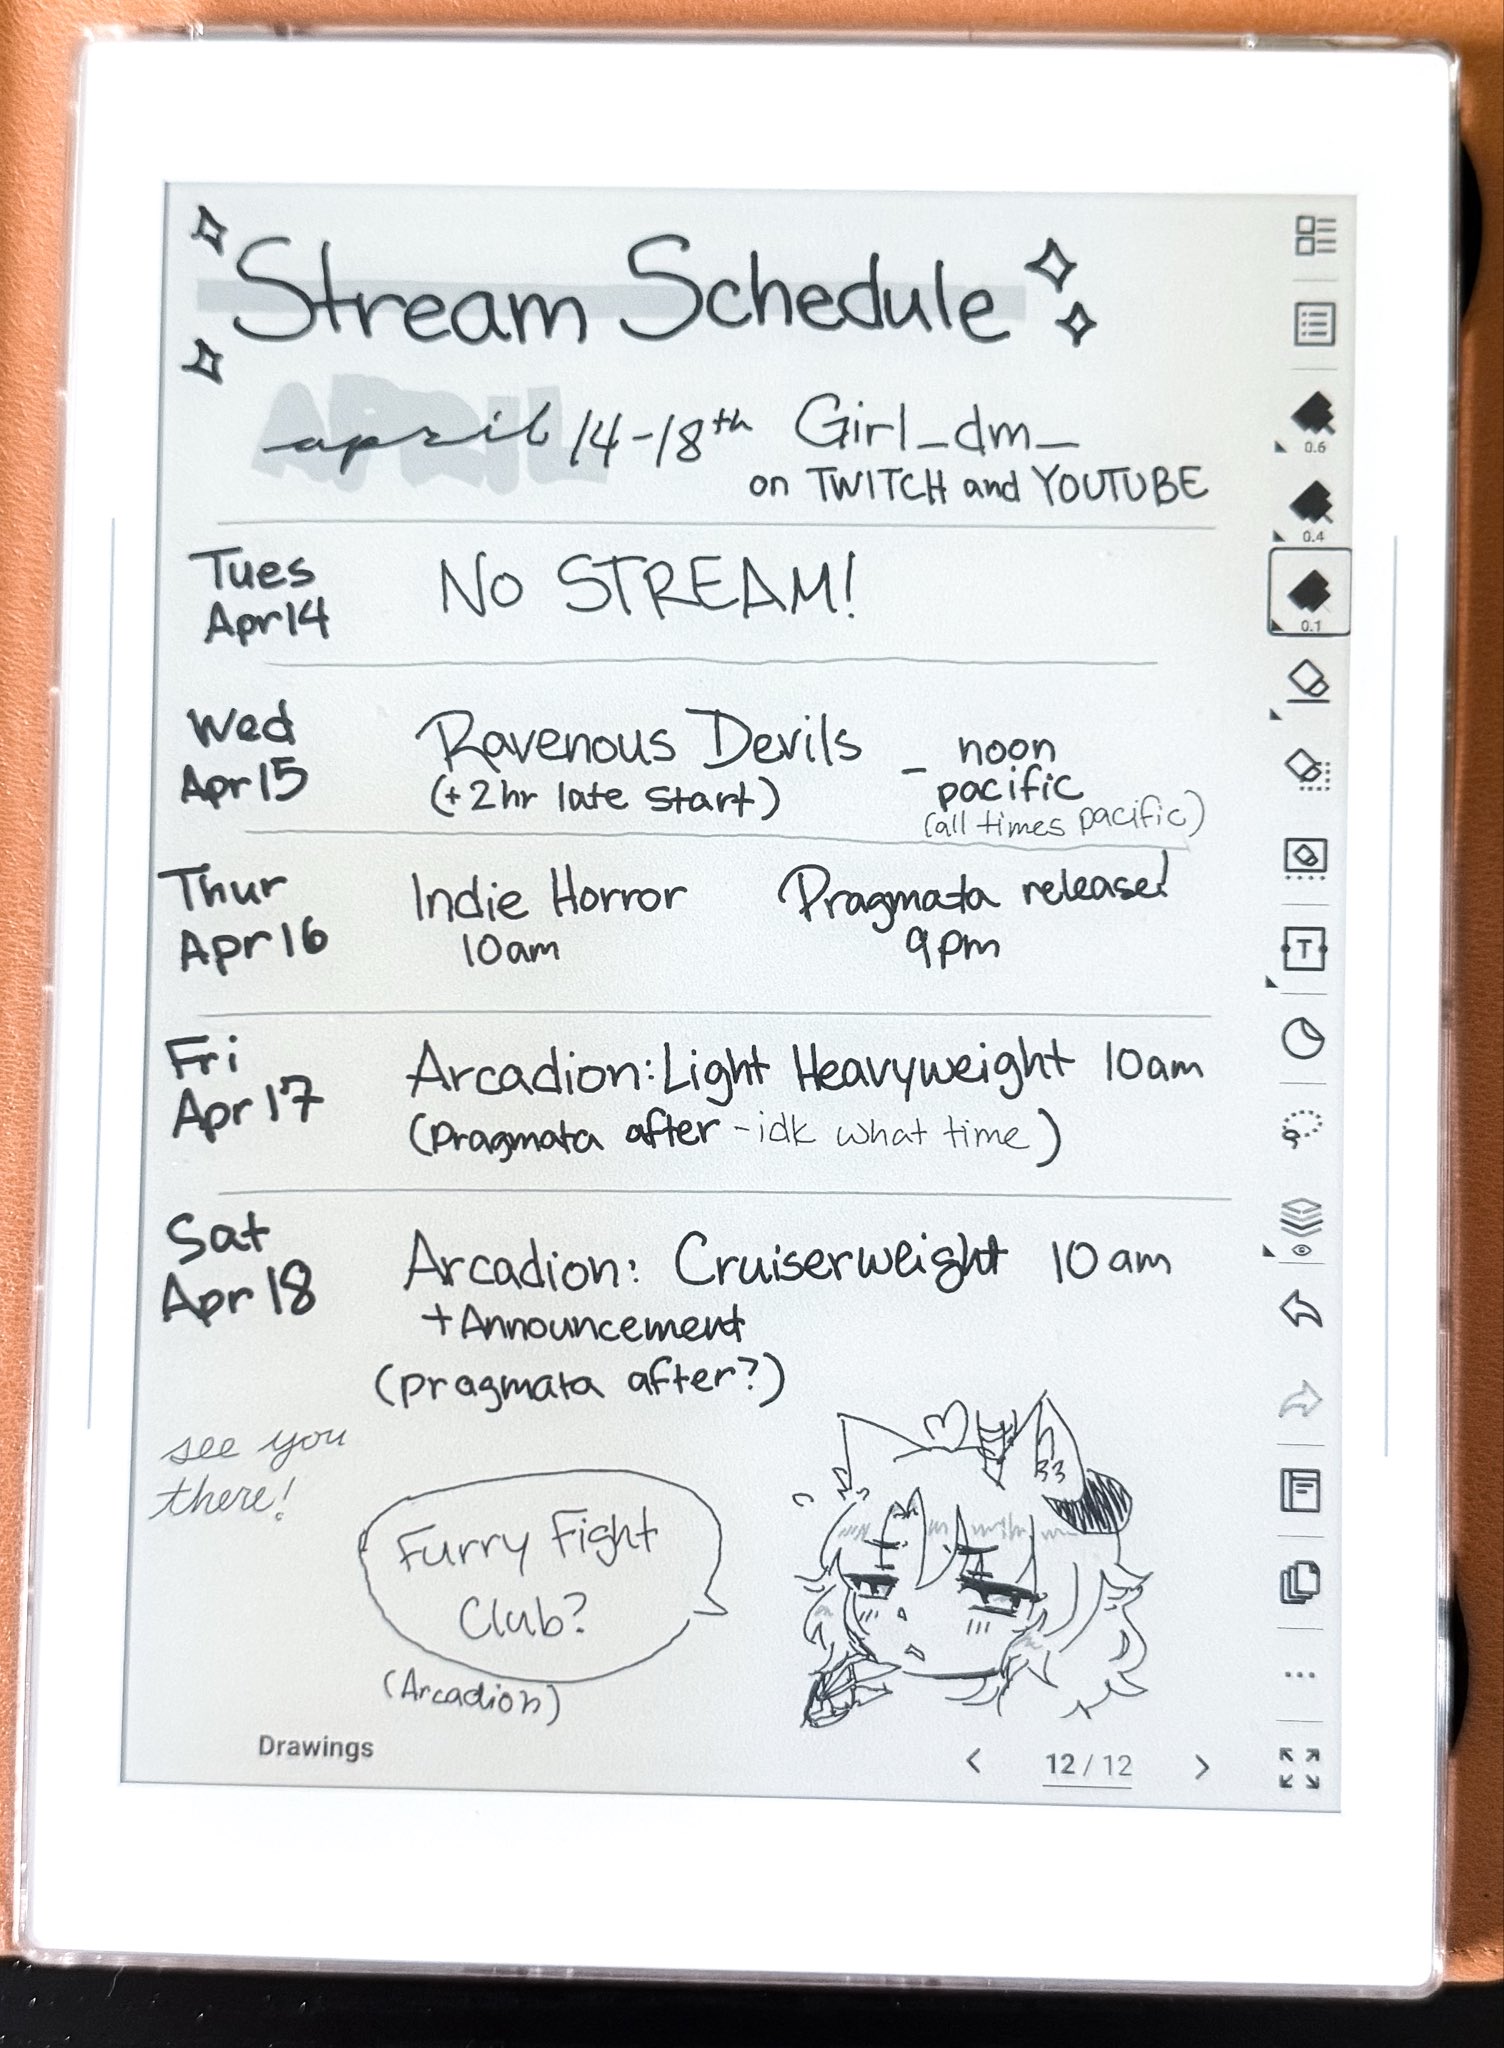 Stream Schedule
APRIL
april 14-18th Girl_dm_
on TWITCH and YOUTUBE
Tues
Apr 14
NO STREAM!
Wed
Apr 15
Ravenous Devils
(+2hr late start)
- noon
pacific
(all times pacific)
Thur
Apr 16
Indie Horror
10am
Pragmata released
9pm
Fri
Apr 17
Arcadion: Light Heavyweight 10am
(pragmata after - idk what time)
Sat
Apr 18
Arcadion: Cruiserweight 10am
+ Announcement
(pragmata after?)
see you
there!
Furry Fight
Club?
(Arcadion)
Drawings
< 12 / 12 >
0.6
0.4
0.1
T